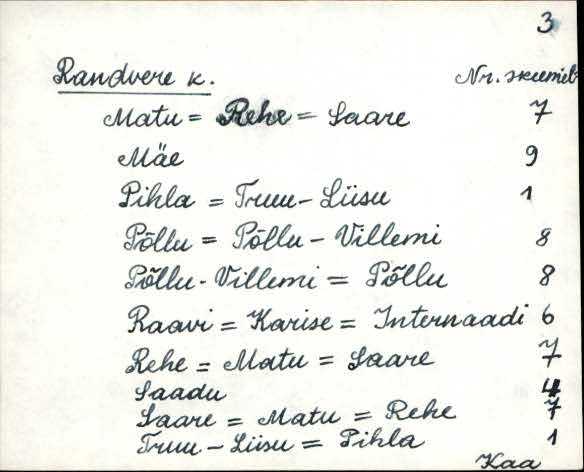 3
Randvere k. Nr. skeemil
Matu = Rehe = Saare 7
Mäe 9
Pihla = Truu-Liisu 1
Põllu = Põllu-Villemi 8
Põllu-Villemi = Põllu 8
Raavi = Karise = Internaadi 6
Rehe = Matu = Saare 7
Saadu 4
Saare = Matu = Rehe 7
Truu-Liisu = Pihla 1
Kaa